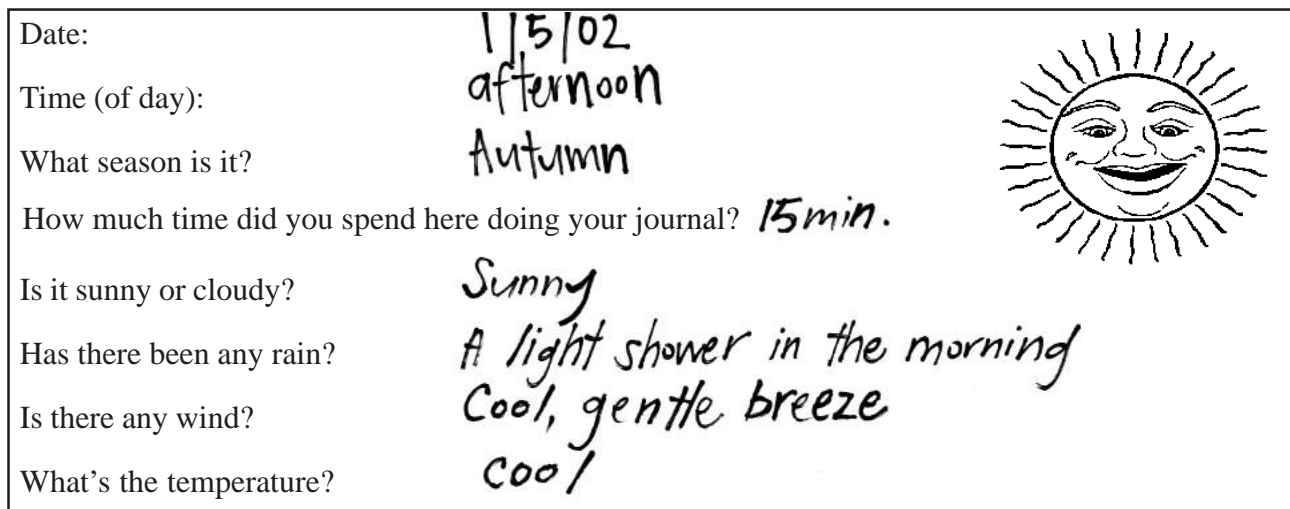 Date: 1/5/02
Time (of day): afternoon
What season is it? Autumn
How much time did you spend here doing your journal? 15 min.
Is it sunny or cloudy? Sunny
Has there been any rain? A light shower in the morning
Is there any wind? Cool, gentle breeze
What’s the temperature? cool